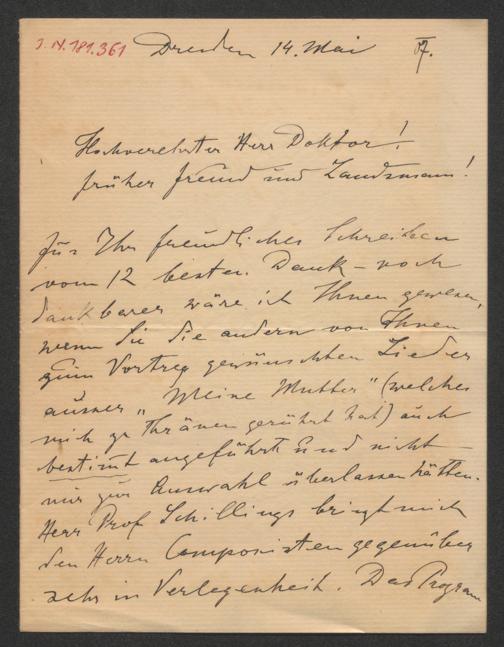 I.N. 181.361
Dresden 14. Mai 07.
Hochverehrter Herr Doktor!
früher Freund und Landsmann!
Für Ihr freundliches Schreiben
vom 12 besten Dank – noch
dankbarer wäre ich Ihnen gewesen,
wenn Sie die andern von Ihnen
zum Vortrag gewünschten Lieder
ausser „Meine Mutter" (welches
mich zu Thränen gerührt hat) auch
bestimt angeführt und nicht
mir zur Auswahl überlassen hätten.
Herr Prof Schillings bringt mich
den Herrn Componisten gegenüber
sehr in Verlegenheit. Das Program